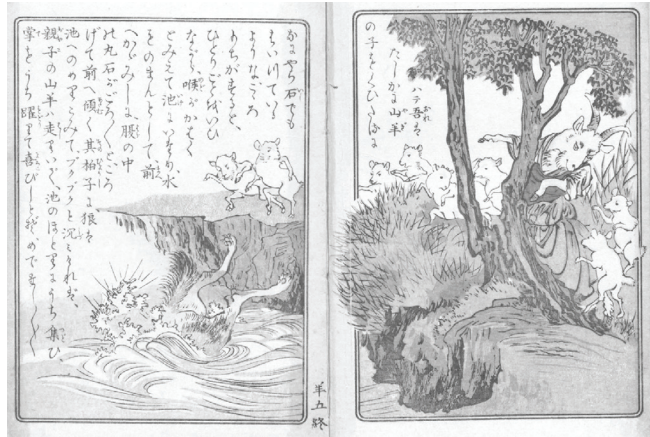 ハテ吾は
たしかに山羊
の子をくひたるに
なにやら石でも
はいつている
ようなこころ
もちがすると、
ひとりごとをいひ
ながら喉がかわく
とみえて池にいたり、水
をのまんとして、前
へかゞみしに、腹の中
の丸石がごろ〱ところ
げて前へ傾く其拍子に狼は
池へのめりこみて、ブクブクと沈みければ、
親子の山羊は走りいで、池のほとりにうち集ひ
掌をうち躍りて喜びしとぞめでたし〱
羊五終